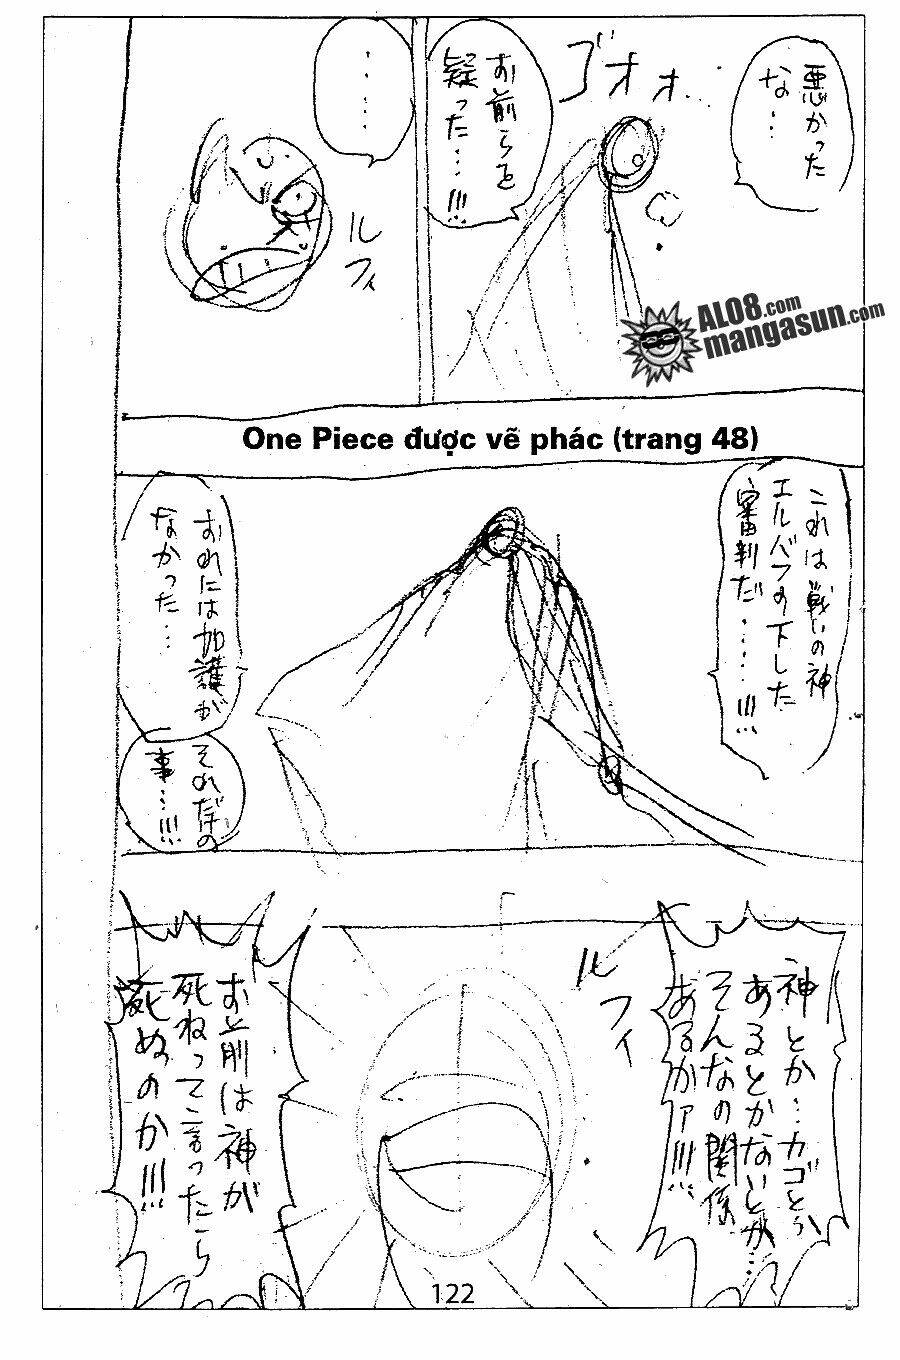 悪かった
な…
ゴオオ
お前らを
疑った…!!!
……
ルフィ
ALO8.com
mangasun.com
One Piece được vẽ phác (trang 48)
これは戦いの神
エルバフの下した
審判だ……!!!
おれには加護が
なかった…
それだけの
事…!!!
神とか…カゴとか
あるとかないとか…
そんなの関係
あるかァ!!!
ルフィ
お前は神が
死ねって言ったら
死ぬのか!!!
122